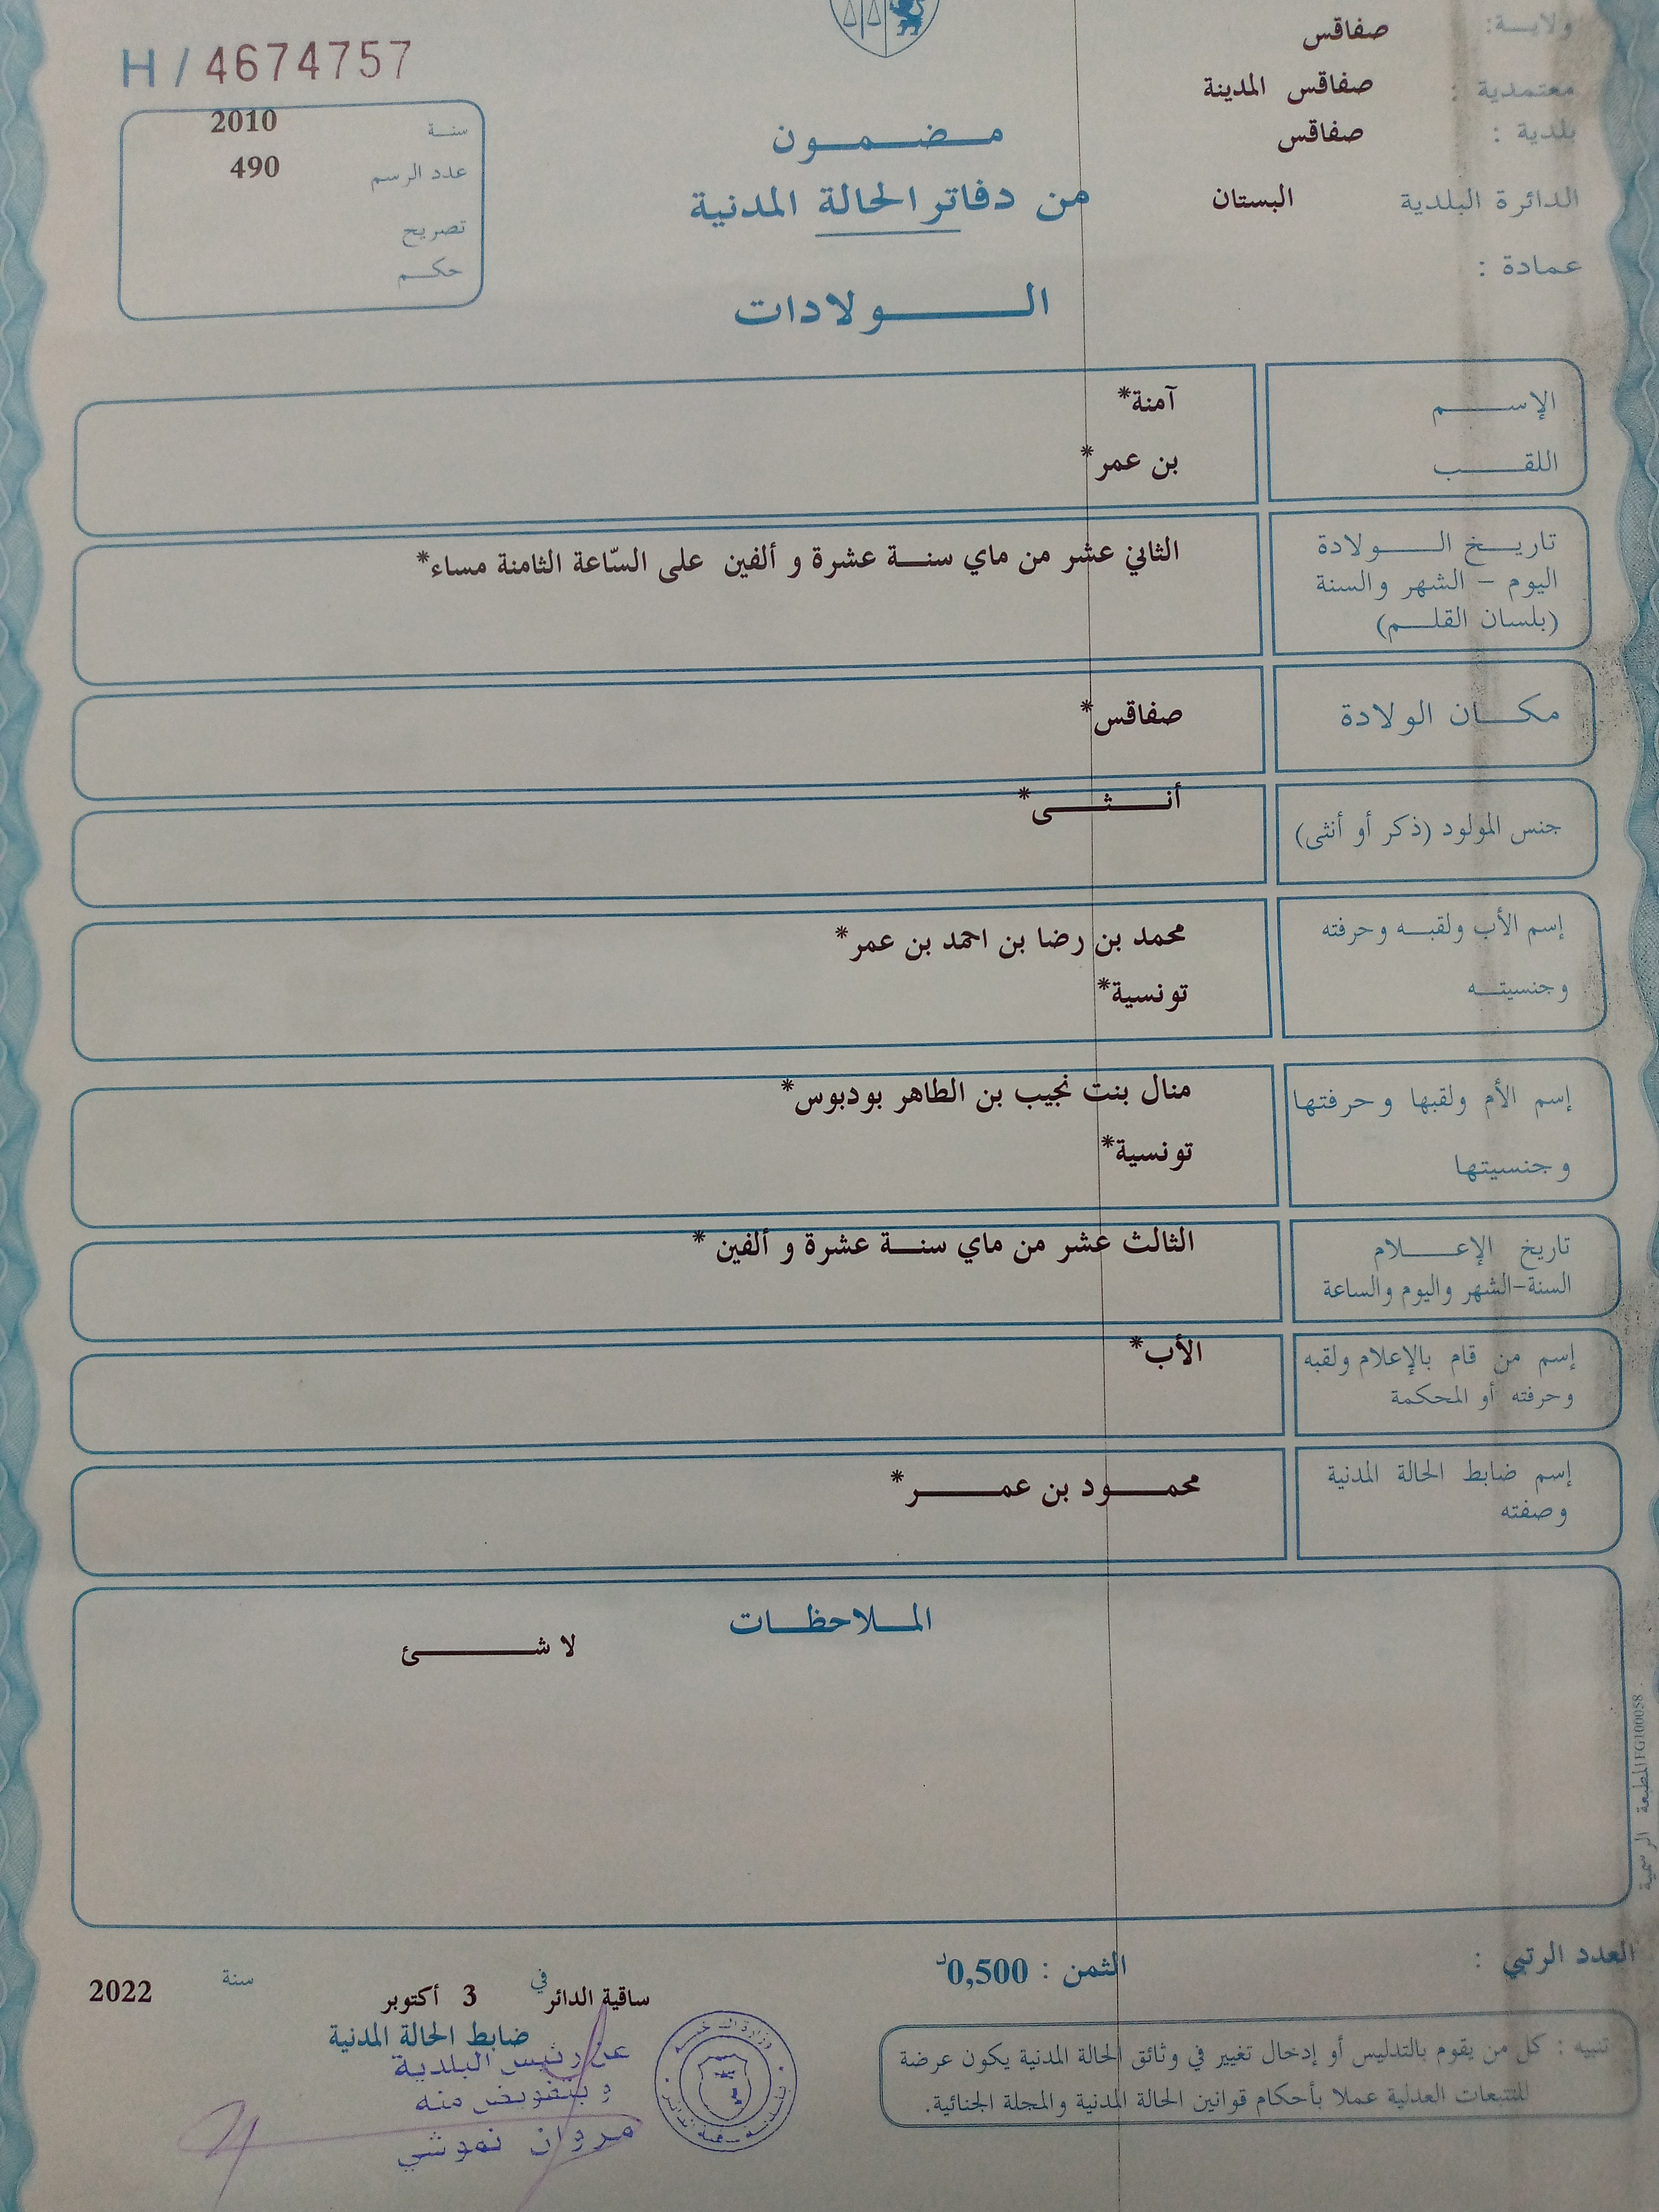 ولايـــة: صفاقس
معتمدية : صفاقس المدينة
بلدية : صفاقس
الدائرة البلدية البستان
عمادة :
H / 4674757
سنة 2010
عدد الرسم 490
تصريح
حكم
مضمون
من دفاتر الحالة المدنية
الولادات
الإسم آمنة*
اللقب بن عمر*
تاريخ الولادة الثاني عشر من ماي سنة عشرة و ألفين على السّاعة الثامنة مساء*
اليوم – الشهر والسنة
(بلسان القلم)
مكان الولادة صفاقس*
جنس المولود (ذكر أو أنثى) أنثى*
إسم الأب ولقبه وحرفته محمد بن رضا بن احمد بن عمر*
وجنسيته تونسية*
إسم الأم ولقبها وحرفتها منال بنت نجيب بن الطاهر بودبوس*
وجنسيتها تونسية*
تاريخ الإعلام الثالث عشر من ماي سنة عشرة و ألفين *
السنة-الشهر واليوم والساعة
إسم من قام بالإعلام ولقبه الأب*
وحرفته أو المحكمة
إسم ضابط الحالة المدنية محمود بن عمر*
وصفته
الملاحظات
لا شئ
المطبعة الرسمية FG100058
العدد الرتبي :
الثمن : 0,500د
ساقية الدائر في 3 أكتوبر سنة 2022
ضابط الحالة المدنية
عن رئيس البلدية
و بتفويض منه
مروان نموشي
تنبيه : كل من يقوم بالتدليس أو إدخال تغيير في وثائق الحالة المدنية يكون عرضة
للتتبعات العدلية عملا بأحكام قوانين الحالة المدنية والمجلة الجنائية.